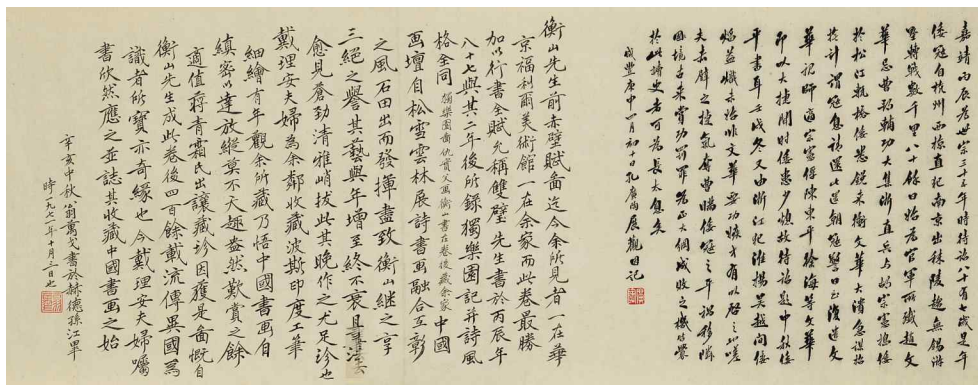 嘉靖丙辰為世宗三十五年時待詔八十有七歲是年
倭寇自杭州西掠直犯南京出秣陵趨無錫滸
墅轉戰數千里八十餘日始為官軍所殲趙文
華忌曹邦輔功大集浙直兵與胡宗憲搗倭
於松江倭悉銳來衝文華大潰急謀招
撫計謂寇息詔還比還朝寇警日至遣文
華視師適宗憲俘陳東平徐海等文華
即以大捷聞時倭患少故特詔中敘倭
平書耳壬戌冬又由浙江犯淮揚吳越間倭
焰益熾未始非文華妄功嫉才有以啓之也嗟
夫赤壁之捷氣奪曹瞞倭寇之平
古來賞功罰罪成敗之機
於此詩史者可為長太息矣
咸豐庚申四月初十日孔廣陶展觀因記
衡山先生前赤壁賦畵迄今余所見者一在華
京福利爾美術館一在余家而此卷最勝
加以行書全賦允稱雙璧先生書於丙辰年
八十七與其二年後所錄獨樂園記并詩風
格全同獨樂園圖仇實父畫衡山書在卷後藏余家中國
畫壇自松雪雲林展詩書畫融合互彰
之風石田出而發揮盡致衡山繼之享
三絕之譽其藝與年增至終不衰且
愈見蒼勁清雅峭拔此其晚作之尤足珍也
戴理安夫婦為余鄰收藏波斯印度工筆
細繪有年觀余所藏乃悟中國書畫自
縝密以達放縱莫不天趣盎然歎賞之餘
適值蔣青霜氏出讓藏珍因獲是畵慨自
衡山先生成此卷後四百餘載流傳異國為
識者所寶亦奇緣也今戴理安夫婦囑
書欣然應之並誌其收藏中國書畫之始
辛亥中秋翁萬戈書於赫德孫江畢
時一九七一年十月三日也